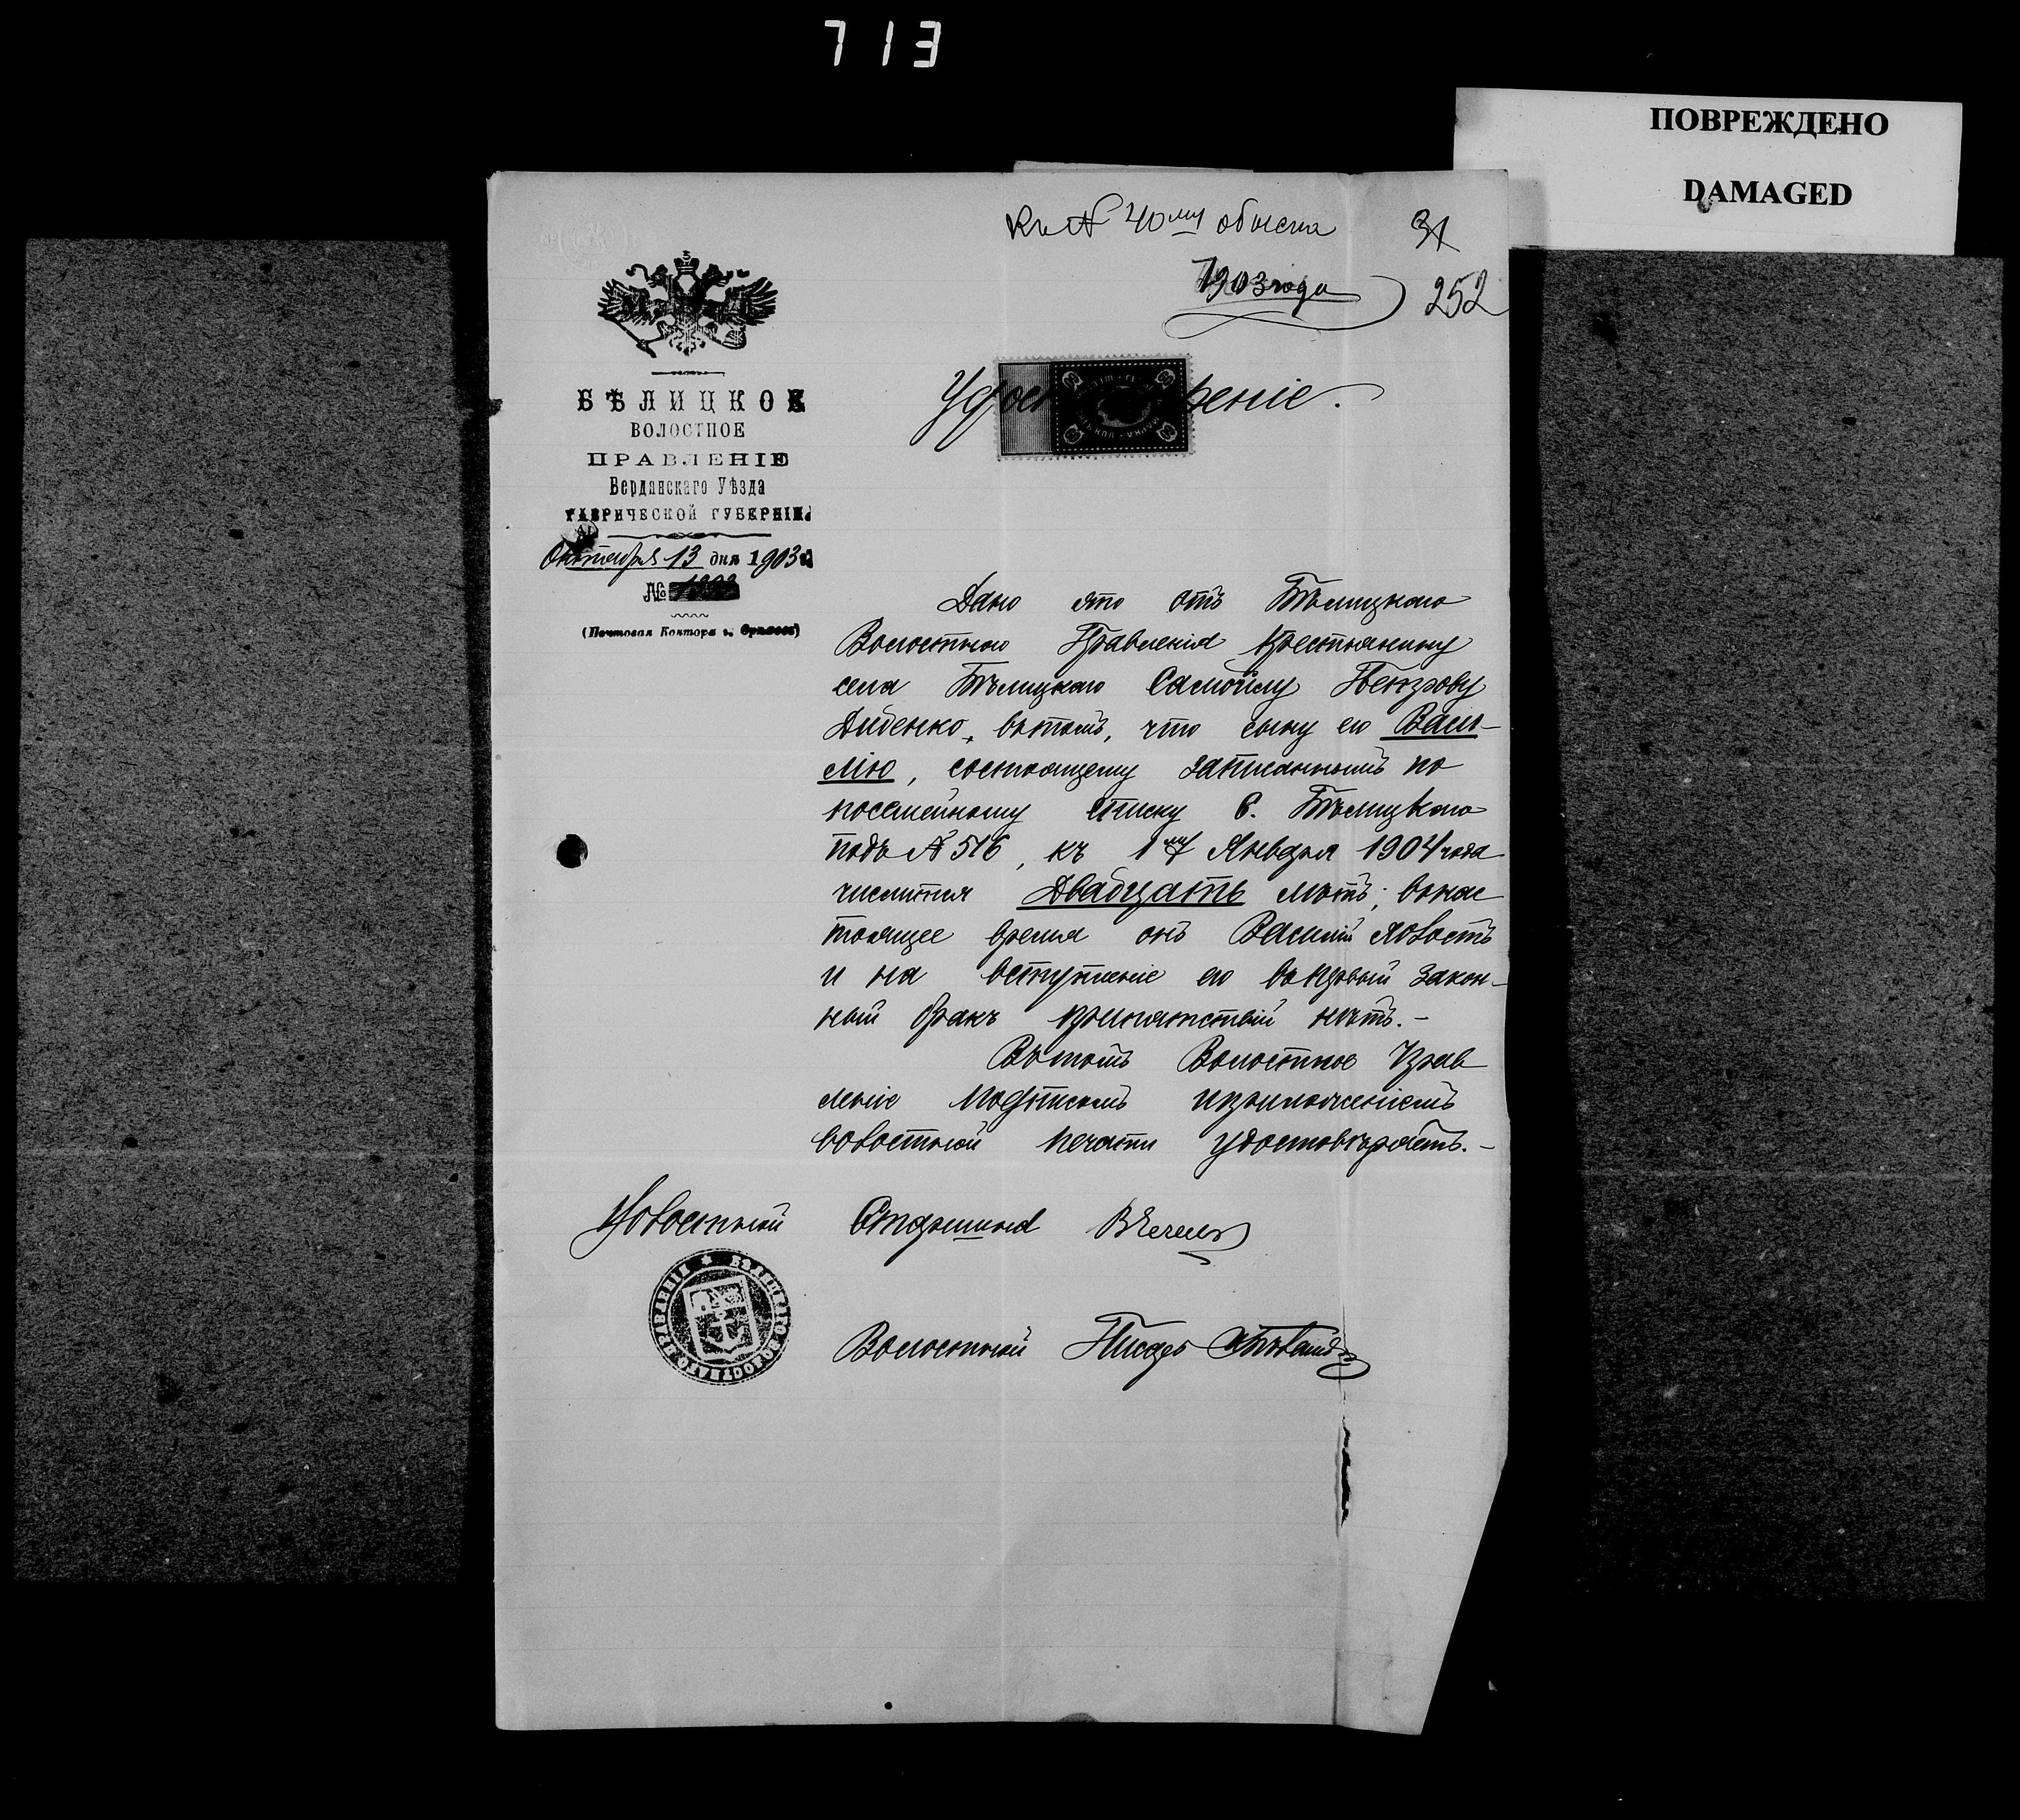 713
ПОВРЕЖДЕНО
DAMAGED
Къ № 40му обыска
31
1903 года
252
БѢЛИЦКОЕ
ВОЛОСТНОЕ
ПРАВЛЕНІЕ
Бердянскаго Уѣзда
ТАВРИЧЕСКОЙ ГУБЕРНІИ.
Октября 13 дня 1903 г.
№
(Почтовая Контора в. Орлянск)
Удос   реніе.
Дано это отъ Бѣлицкаго
Волостного Правленія крестьянину
села Бѣлицкаго Самойлу Петрову
Диденко, вътомъ, что сыну его Васи-
лію, состоящему записаннымъ по
посемейному списку с. Бѣлицкаго
подъ № 516, къ 1му Января 1904 года
числится Двадцать лѣтъ; внас
тоящее время онъ Василій холостъ
и на вступленіе его въ первый закон-
ный бракъ препятствій нѣтъ.-
Вътомъ Волостное Прав
леніе подписомъ иприложеніемъ
волостной печати удостовѣряетъ.-
Волостной Старшина
БѢЛИЦКАГО ВОЛОСТНАГО ПРАВЛЕНІЯ
Волостной Писарь